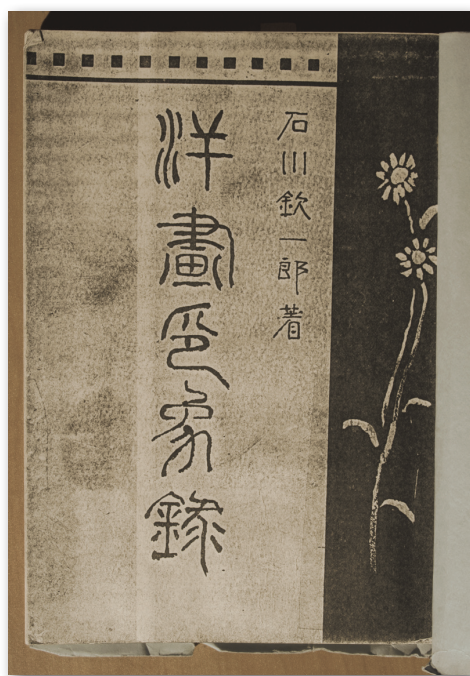 石川欽一郎著
洋畫印象錄